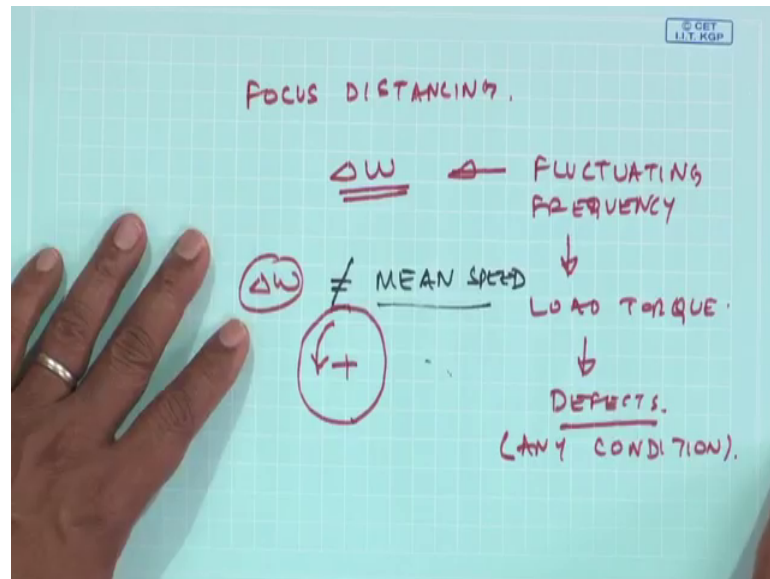 © CET
I.I.T. KGP
FOCUS DISTANCING.
Δω ← FLUCTUATING
FREQUENCY
↓
Δω ≠ MEAN SPEED
LOAD TORQUE.
↓
DEFECTS.
(ANY CONDITION).